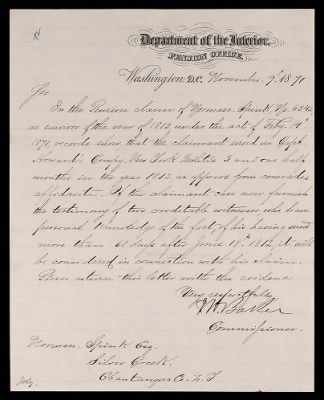 Department of the Interior,
PENSION OFFICE,
Washington, D.C., November 9" 1871
Sir
In the Pension claim of Norman Spink No 6542
as survivor of the war of 1812 under the act of Feby. 14"
1871, records show that the claimant served in Capt
Howard's Compy, New York Militia 3 and one half
months in the year 1812 as appears from comrades
affidavits. If the claimant can now furnish
the testimony of two creditable witnesses who have
personal knowledge of the fact of his having served
more than 60 days after June 18" 1812, it will
be considered in connection with his claim.
Please return this letter with the evidence
Very respectfully
J H Baker
Commissioner.
Norman Spink Esq.
Silver Creek.
Chautauqua Co. N.Y.